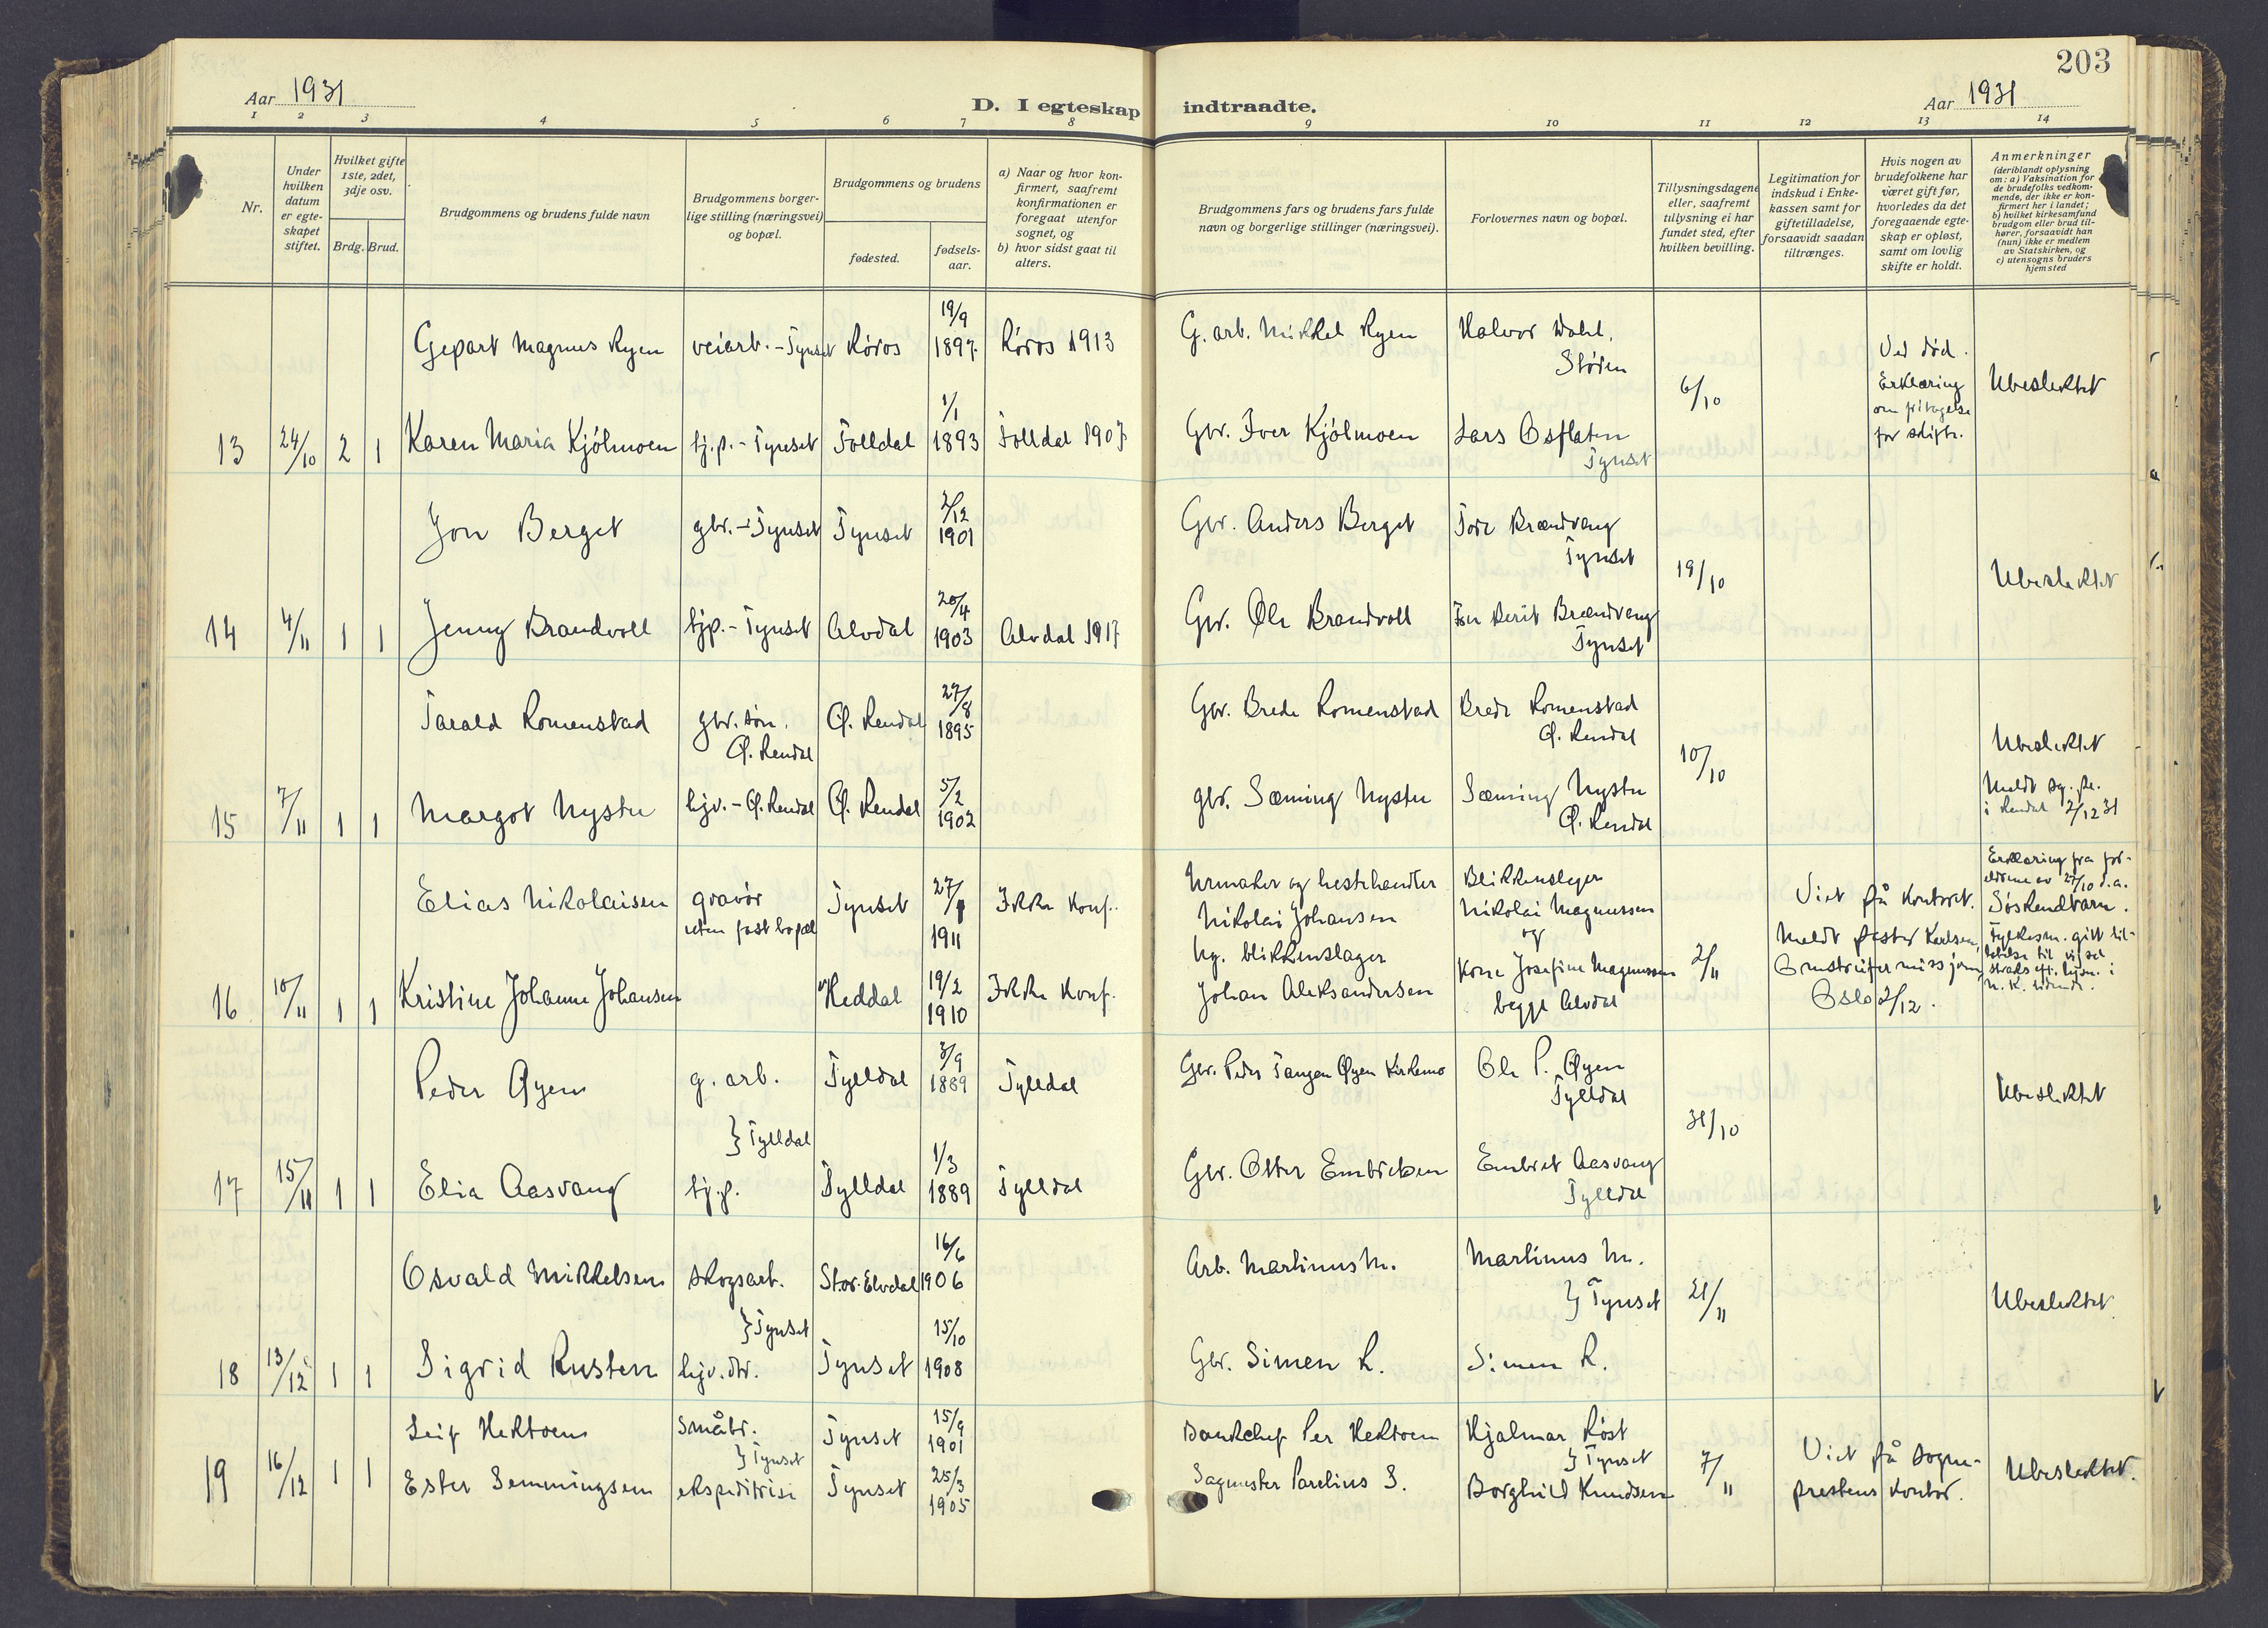 203
Aar 1931
D. I egteskap indtraadte.
Aar 1931
1 2 3 4 5 6 7 8 9 10 11 12 13 14
Nr.
Under hvilken datum er egteskapet stiftet.
Hvilket gifte 1ste, 2det, 3dje osv.
Brdg. Brud.
Brudgommens og brudens fulde navn
Brudgommens borgerlige stilling (næringsvei) og bopæl.
Brudgommens og brudens
fødested.
fødselsaar.
a) Naar og hvor konfirmert, saafremt konfirmationen er foregaat utenfor sognet, og
b) hvor sidst gaat til alters.
Brudgommens fars og brudens fars fulde navn og borgerlige stillinger (næringsvei).
Forlovernes navn og bopæl.
Tillysningsdagene eller, saafremt tillysning ei har fundet sted, efter hvilken bevilling.
Legitimation for indskud i Enkekassen samt for giftetilladelse, forsaavidt saadan tiltrænges.
Hvis nogen av brudefolkene har været gift før, hvorledes da det foregaaende egteskap er opløst, samt om lovlig skifte er holdt.
Anmerkninger (deriblandt oplysning om: a) Vaksination for de brudefolks vedkommende, der ikke er konfirmert her i landet; b) hvilket kirkesamfund brudgom eller brud tilhører, forsaavidt han (hun) ikke er medlem av Statskirken, og c) utensogns bruders hjemsted
Gepart Magnus Ryen veiarb. - Tynset Røros 19/9 1897 Røros 1913 G. arb. Mikkel Ryen Halvor Dahl, Støren
6/10
Ved død. Erklæring om fritagelse for skifte.
Ubeslektet
13 24/10 2 1 Karen Maria Kjølmoen hj.p. - Tynset Folldal 1/1 1893 Folldal 1907 Gbr. Iver Kjølmoen Lars Osflaten Tynset
Jon Berget gbr. - Tynset Tynset 2/12 1901 Gbr. Anders Berget Tore Brændvang Tynset
19/10
Ubeslektet
14 4/11 1 1 Jenny Brandvoll hjp. - Tynset Alvdal 20/4 1903 Alvdal 1917 Gbr. Ole Brandvoll Berit Brændvang Tynset
Tarald Romenstad gbr. søn. Ø. Rendal Ø. Rendal 27/8 1895 Gbr. Brede Romenstad Brede Romenstad Ø. Rendal
10/10
Ubeslektet
15 7/11 1 1 Margot Nystu hjv. - Ø. Rendal Ø. Rendal 5/2 1902 gbr. Sæming Nystu Sæming Nystu Ø. Rendal
Meldt sg. pr. i Rendal 2/12 31
Elias Nikolaisen gravør uten fast bopæl Tynset 27/1 1911 Ikke konf. Urmaker og hestehandler Nikolai Johansen Blikkenslager Nikolai Magnussen
og
2/11
Viet på kontoret. Meldt Karlsen, Omstreifermissjonen, Oslo 2/12.
Erklæring fra foreldrene av 27/10 d.a. Søskendbarn. Fylkesm. gitt tillatelse til
16 10/11 1 1 Kristine Johanne Johansen Heddal 19/2 1910 Ikke konf. blikkenslager Johan Aleksandersen Kone Josefine Magnussen begge Alvdal
Peder Øyen g. arb. Tylldal 3/9 1889 Tylldal Gbr. Peder Tangen Øyen Kirkemo Ole P. Øyen Tylldal
} Tylldal
31/10
Ubeslektet
17 15/11 1 1 Elia Aasvang hj.p. Tylldal 1/3 1889 Tylldal Gbr. Otter Embretsen Embret Aasvang Tylldal
Osvald Mikkelsen skogsarb. Stor-Elvdal 16/6 1906 Arb. Martinus M. Martinus M.
} Tynset
} Tynset 21/11
Ubeslektet
18 13/12 1 1 Sigrid Rusten hjv. dtr. Tynset 15/10 1908 Gbr. Simen R. Simen R.
Leif Hektoen småbr. Tynset 15/9 1901 Bankchef Per Hektoen Hjalmar Røst
} Tynset
} Tynset 7/11
Viet på sogneprestens kontor.
Ubeslektet.
19 16/12 1 1 Ester Semmingsen ekspeditrise Tynset 25/3 1905 Sagmester Parelius S. Borghild Knudsen